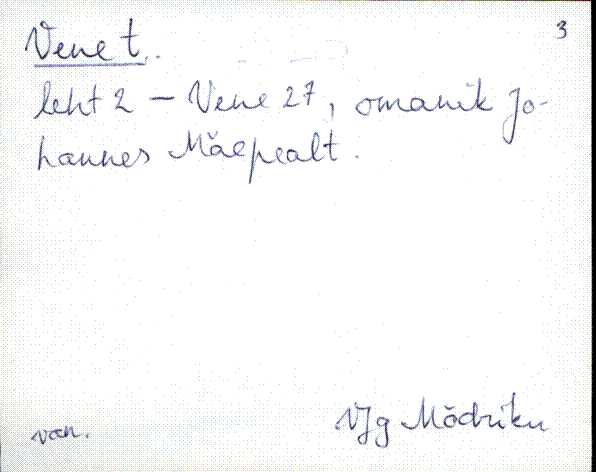 3
Vene t.
leht 2 – Vene 27, omanik Jo-
hannes Mäepealt.
VJg Mõdriku
van.